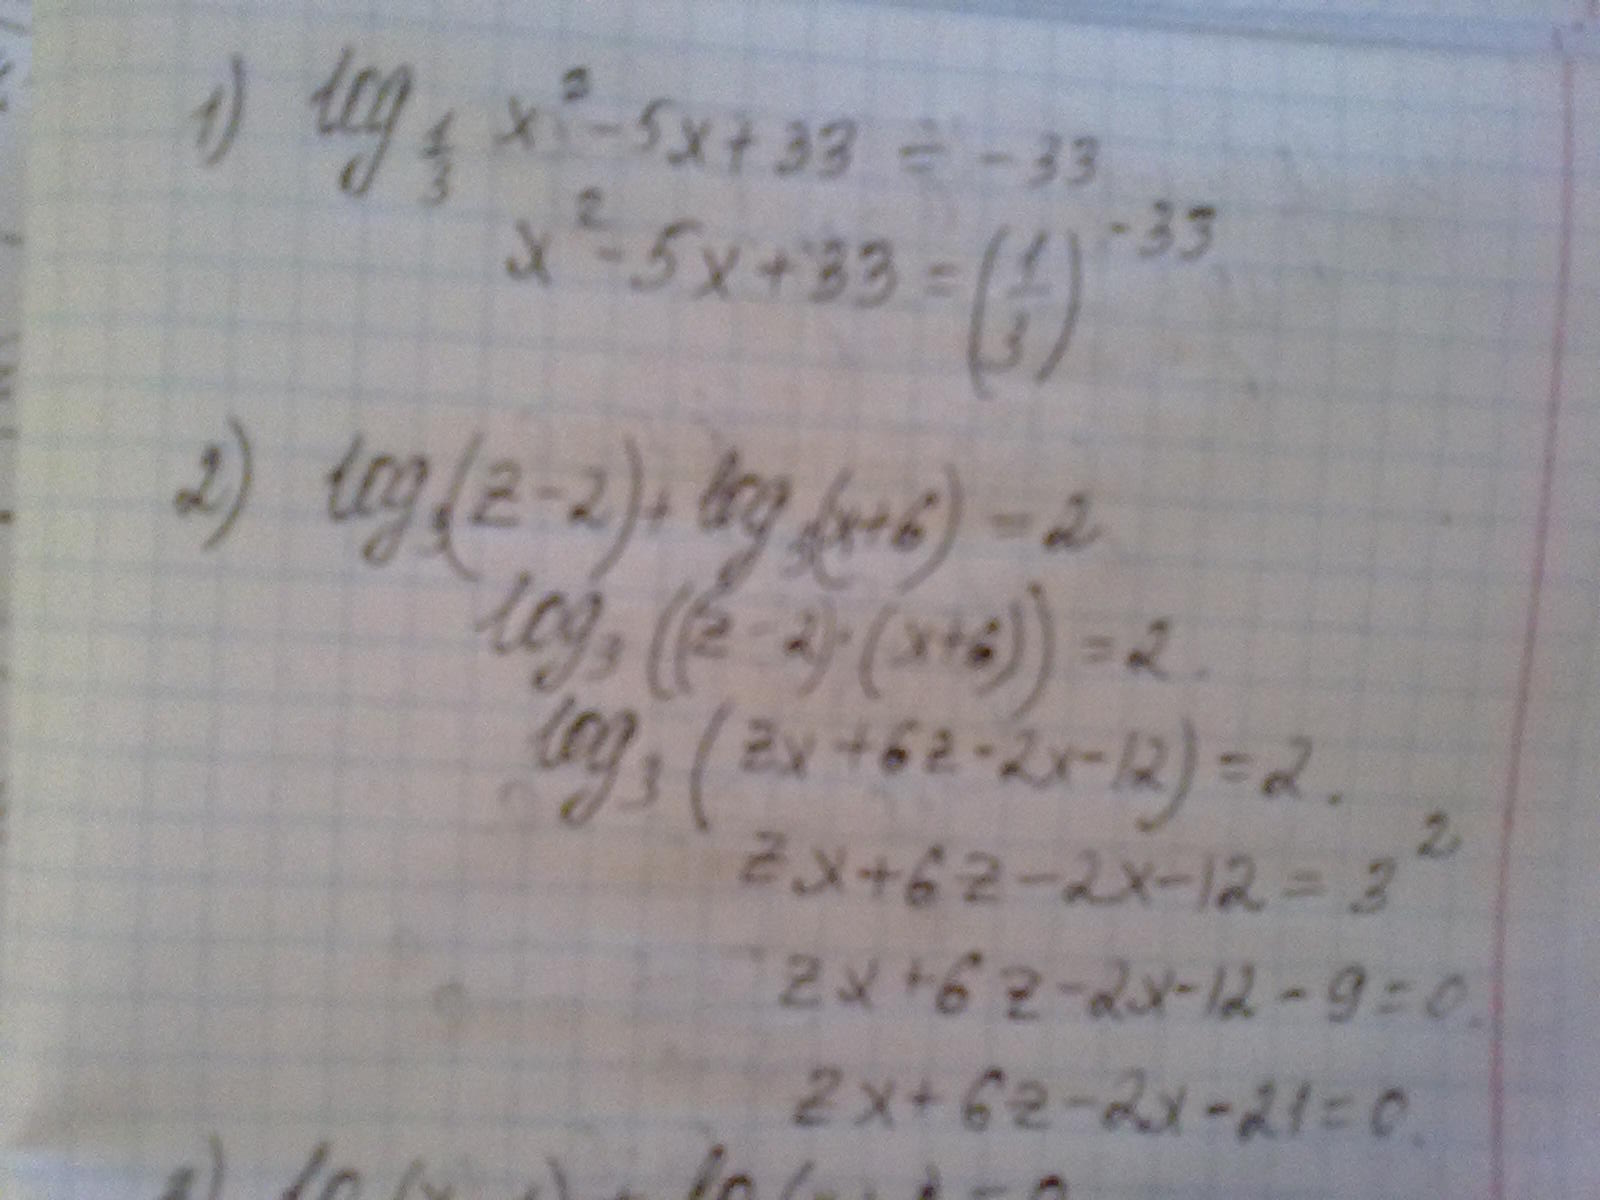 1) log 1/3 x² - 5x + 33 = -33
x² - 5x + 33 = (1/3)^-33
2) log₃(z-2) + log₃(x+6) = 2
log₃((z-2)·(x+6)) = 2.
log₃(zx+6z-2x-12) = 2.
zx+6z-2x-12 = 3²
zx+6z-2x-12-9=0.
zx+6z-2x-21=0.